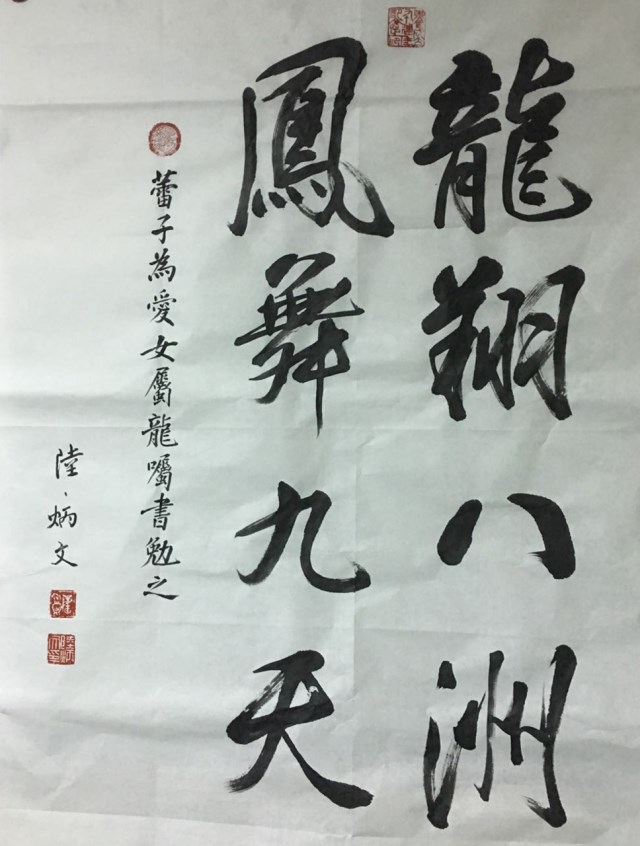 龍翔八洲
鳳舞九天
蕾子為愛女屬龍囑書勉之
陸炳文